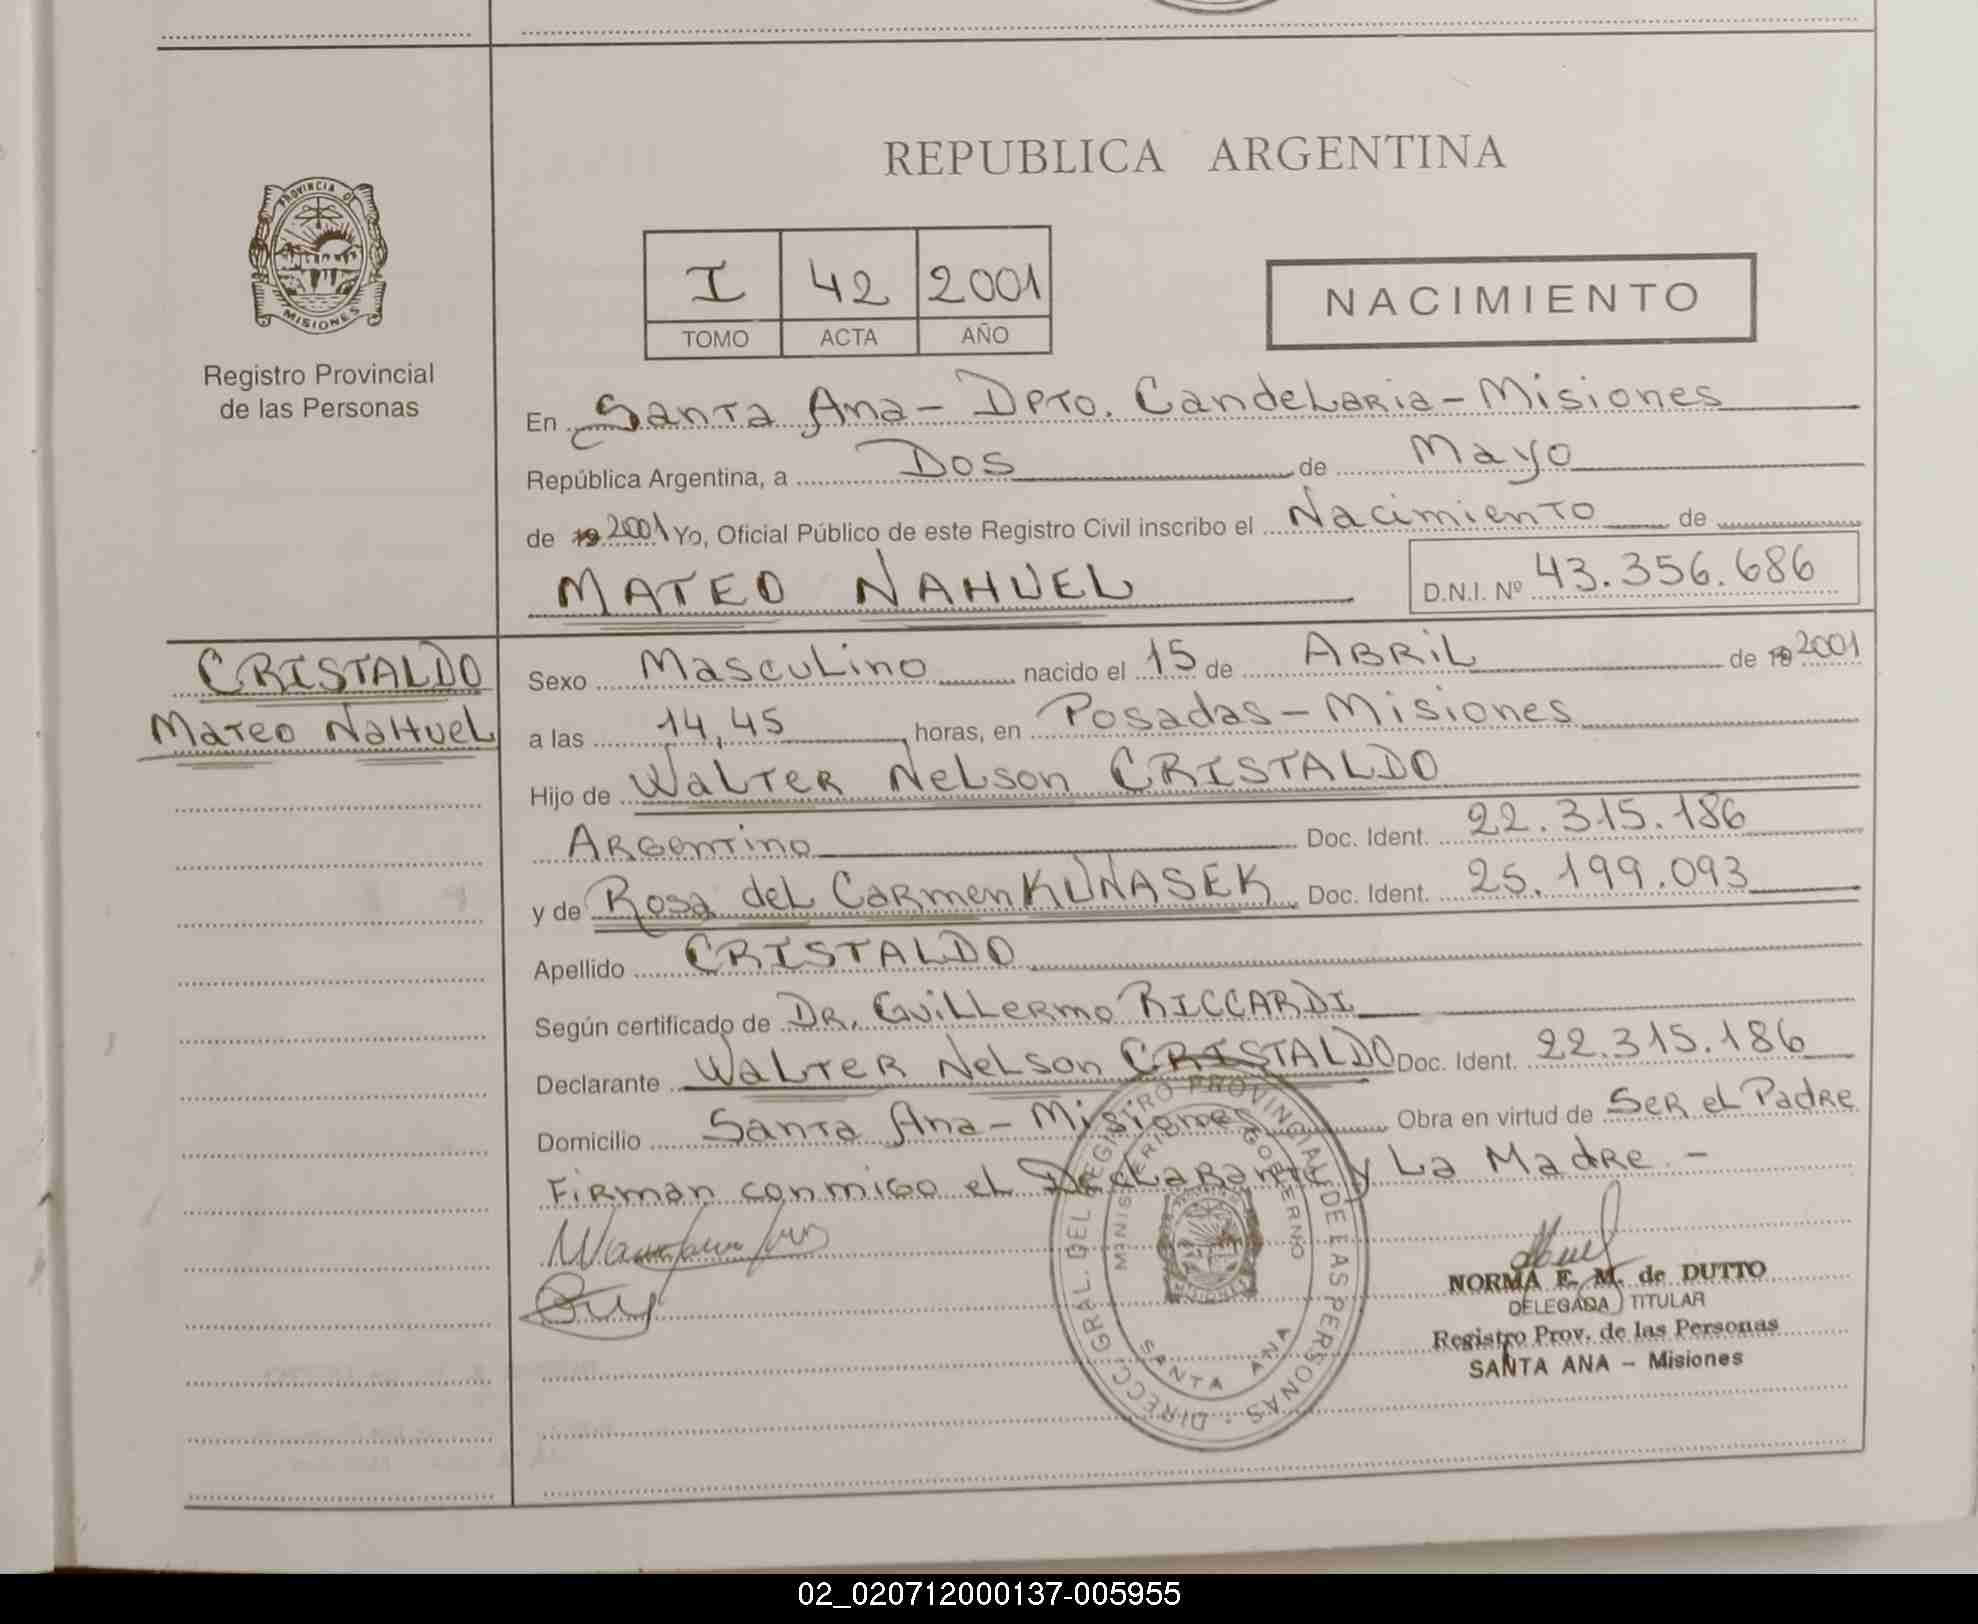 PROVINCIA DE
MISIONES
Registro Provincial
de las Personas
REPUBLICA ARGENTINA
I 42 2001
TOMO ACTA AÑO
NACIMIENTO
En Santa Ana - Dpto. Candelaria - Misiones
República Argentina, a Dos de Mayo
de 19 2001 Yo, Oficial Público de este Registro Civil inscribo el Nacimiento de
MATEO NAHUEL
D.N.I. Nº 43.356.686
CRISTALDO
Mateo Nahuel
Sexo Masculino nacido el 15 de ABRiL de 19 2001
a las 14,45 horas, en Posadas - Misiones
Hijo de Walter Nelson CRISTALDO
Argentino Doc. Ident. 22.315.186
y de Rosa del Carmen KUNASEK Doc. Ident. 25.199.093
Apellido CRISTALDO
Según certificado de DR. Guillermo RICCARDI
Declarante Walter Nelson CRISTALDO Doc. Ident. 22.315.186
Domicilio Santa Ana - Misiones Obra en virtud de Ser el Padre
Firman conmigo el Declarante y La Madre. -
DIRECC. GRAL. DEL REGISTRO PROVINCIAL DE LAS PERSONAS
MINISTERIO GOBIERNO
MISIONES
SANTA ANA
NORMA E. M. de DUTTO
DELEGADA TITULAR
Registro Prov. de las Personas
SANTA ANA - Misiones
02_020712000137-005955